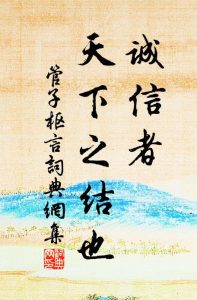 诚信者
天下之结也
管子枢言詞典網集